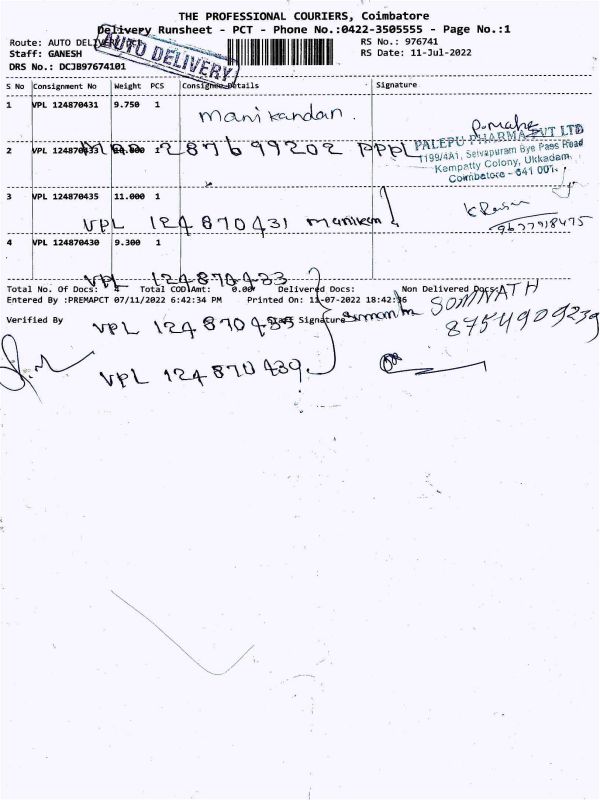 THE PROFESSIONAL COURIERS, Coimbatore
Delivery Runsheet - PCT - Phone No.:0422-3505555 - Page No.:1
Route: AUTO DELIVERY
AUTO DELIVERY
RS No.: 976741
Staff: GANESH
RS Date: 11-Jul-2022
DRS No.: DCJB97674101
S No Consignment No Weight PCS Consignee Details Signature
1 VPL 124870431 9.750 1
manikandan.
PALEPU PHARMA PVT LTD
1199/4A1, Selvapuram Bye Pass Road
Kempatty Colony, Ukkadam,
Coimbatore - 641 001.
2 VPL 124870433 1
287699202 PPPL
3 VPL 124870435 11.000 1
VPL 124870431
9637918475
4 VPL 124870430 9.300 1
VPL 124870433
Total No. Of Docs: 4 Total CODAmt: 0.00 Delivered Docs: Non Delivered Docs:
Entered By :PREMAPCT 07/11/2022 6:42:34 PM Printed On: 11-07-2022 18:42:36
SOMNATH
8754909239
Verified By
Signature
VPL 124870435
VPL 124870439